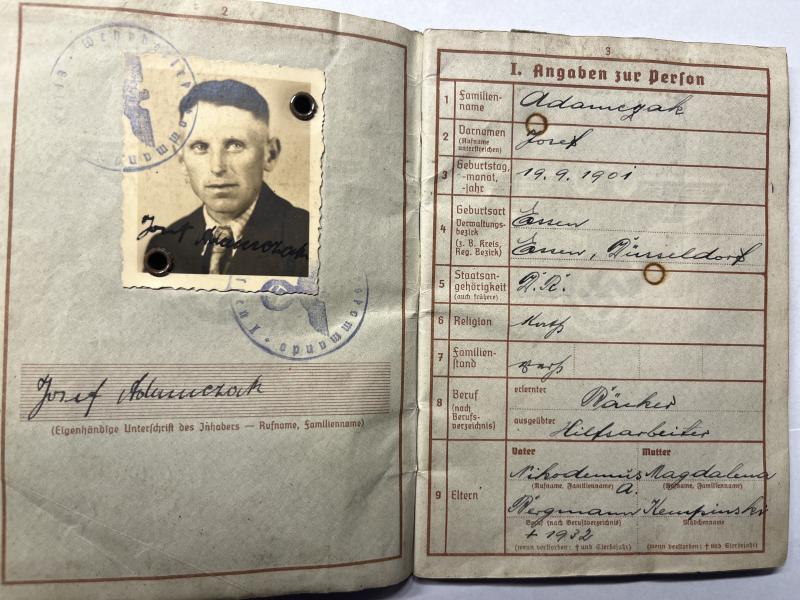 2
Wehrbezirkskommando
Josef Adamczak
kommando
Josef Adamczak
(Eigenhändige Unterschrift des Inhabers — Rufname, Familienname)
3
I. Angaben zur Person
1 Familien-
name
Adamczak
2 Vornamen
(Rufname
unterstreichen)
Josef
3 Geburtstag,
-monat,
-jahr
19. 9. 1901
4 Geburtsort
Verwaltungs-
bezirk
(z. B. Kreis,
Reg. Bezirk)
Essen
Essen, Düsseldorf
5 Staatsan-
gehörigkeit
(auch frühere)
D.R.
6 Religion
kath
7 Familien-
stand
verh
8 Beruf
(nach
Berufs-
verzeichnis)
erlernter
Bäcker
ausgeübter
Hilfsarbeiter
9 Eltern
Vater Mutter
Nikodemus Magdalena
(Rufname, Familienname) (Rufname, Familienname)
A.
Bergmann Kempinski
Beruf (nach Berufsverzeichnis) Mädchenname
+ 1932
(wenn verstorben: † und Sterbejahr) (wenn verstorben: † und Sterbejahr)